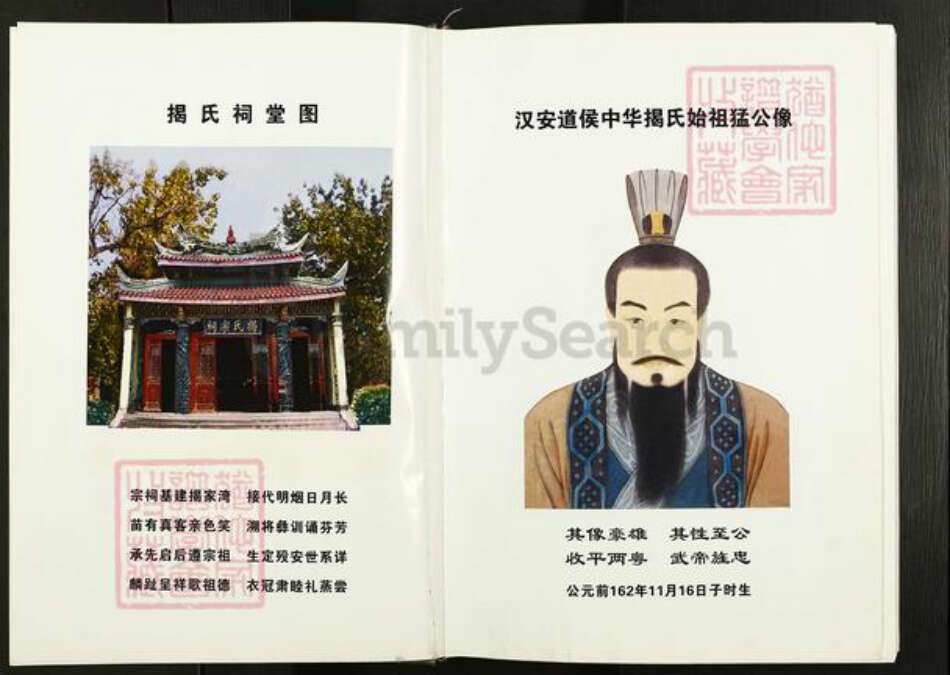 揭氏祠堂图
宗祠基建揭家湾 接代明烟日月长
苗有真客亲色笑 溯将彝训诵芬芳
承先启后遵宗祖 生定殁安世系详
麟趾呈祥歌祖德 衣冠肃睦礼蒸尝
汉安道侯中华揭氏始祖猛公像
其像豪雄 其性至公
收平两粤 武帝旌忠
公元前162年11月16日子时生
FamilySearch